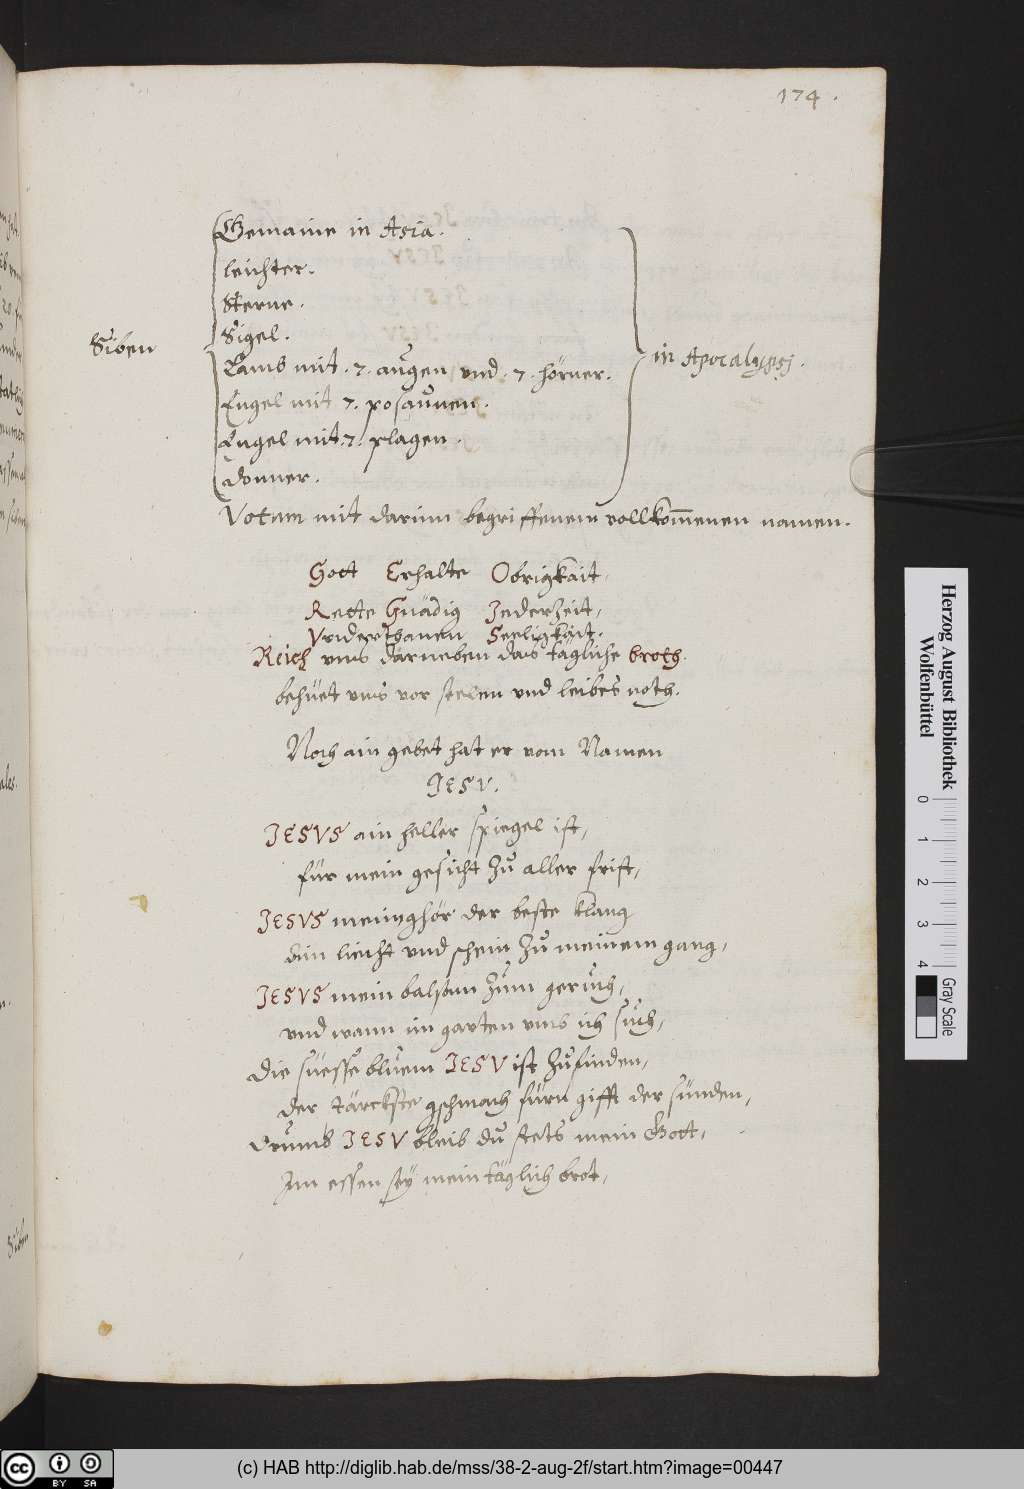 174.
Gemaine in Asia.
leichter.
Sterne.
Sigel.
Siben
Lamb mit .7. augen vnd .7. hörner.
in Apocalypsj.
Engel mit 7. posaunen.
Engel mit .7. plagen.
donner.
Votum mit darinn begriffenem vollkom̄enen namen.
Gott Erhalte Obrigkait,
Rette Gnädig Jederzeit,
Vnderthanen Seeligkait.
Reich vns darneben das tägliche broth.
behüet vns vor seelen vnd leibes noth.
Noch ain gebet hat er vom Namen
JESV.
JESVS ain heller spiegel ist,
für mein gesicht zu aller frist,
JESVS meinnghör der beste klang
ein liecht vnd schein zu meinem gang,
JESVS mein balsam zum geruch,
vnd wann im garten vmb ich such,
Die süesse bluem JESV ist zufinden,
der stärckste gschmach fürn gifft der sünden,
Drumb JESV bleib du stets mein Gott,
Im essen sey mein täglich brot,
Siben
Herzog August Bibliothek
Wolfenbüttel
0 1 2 3 4
Gray Scale
cc BY SA
(c) HAB http://diglib.hab.de/mss/38-2-aug-2f/start.htm?image=00447